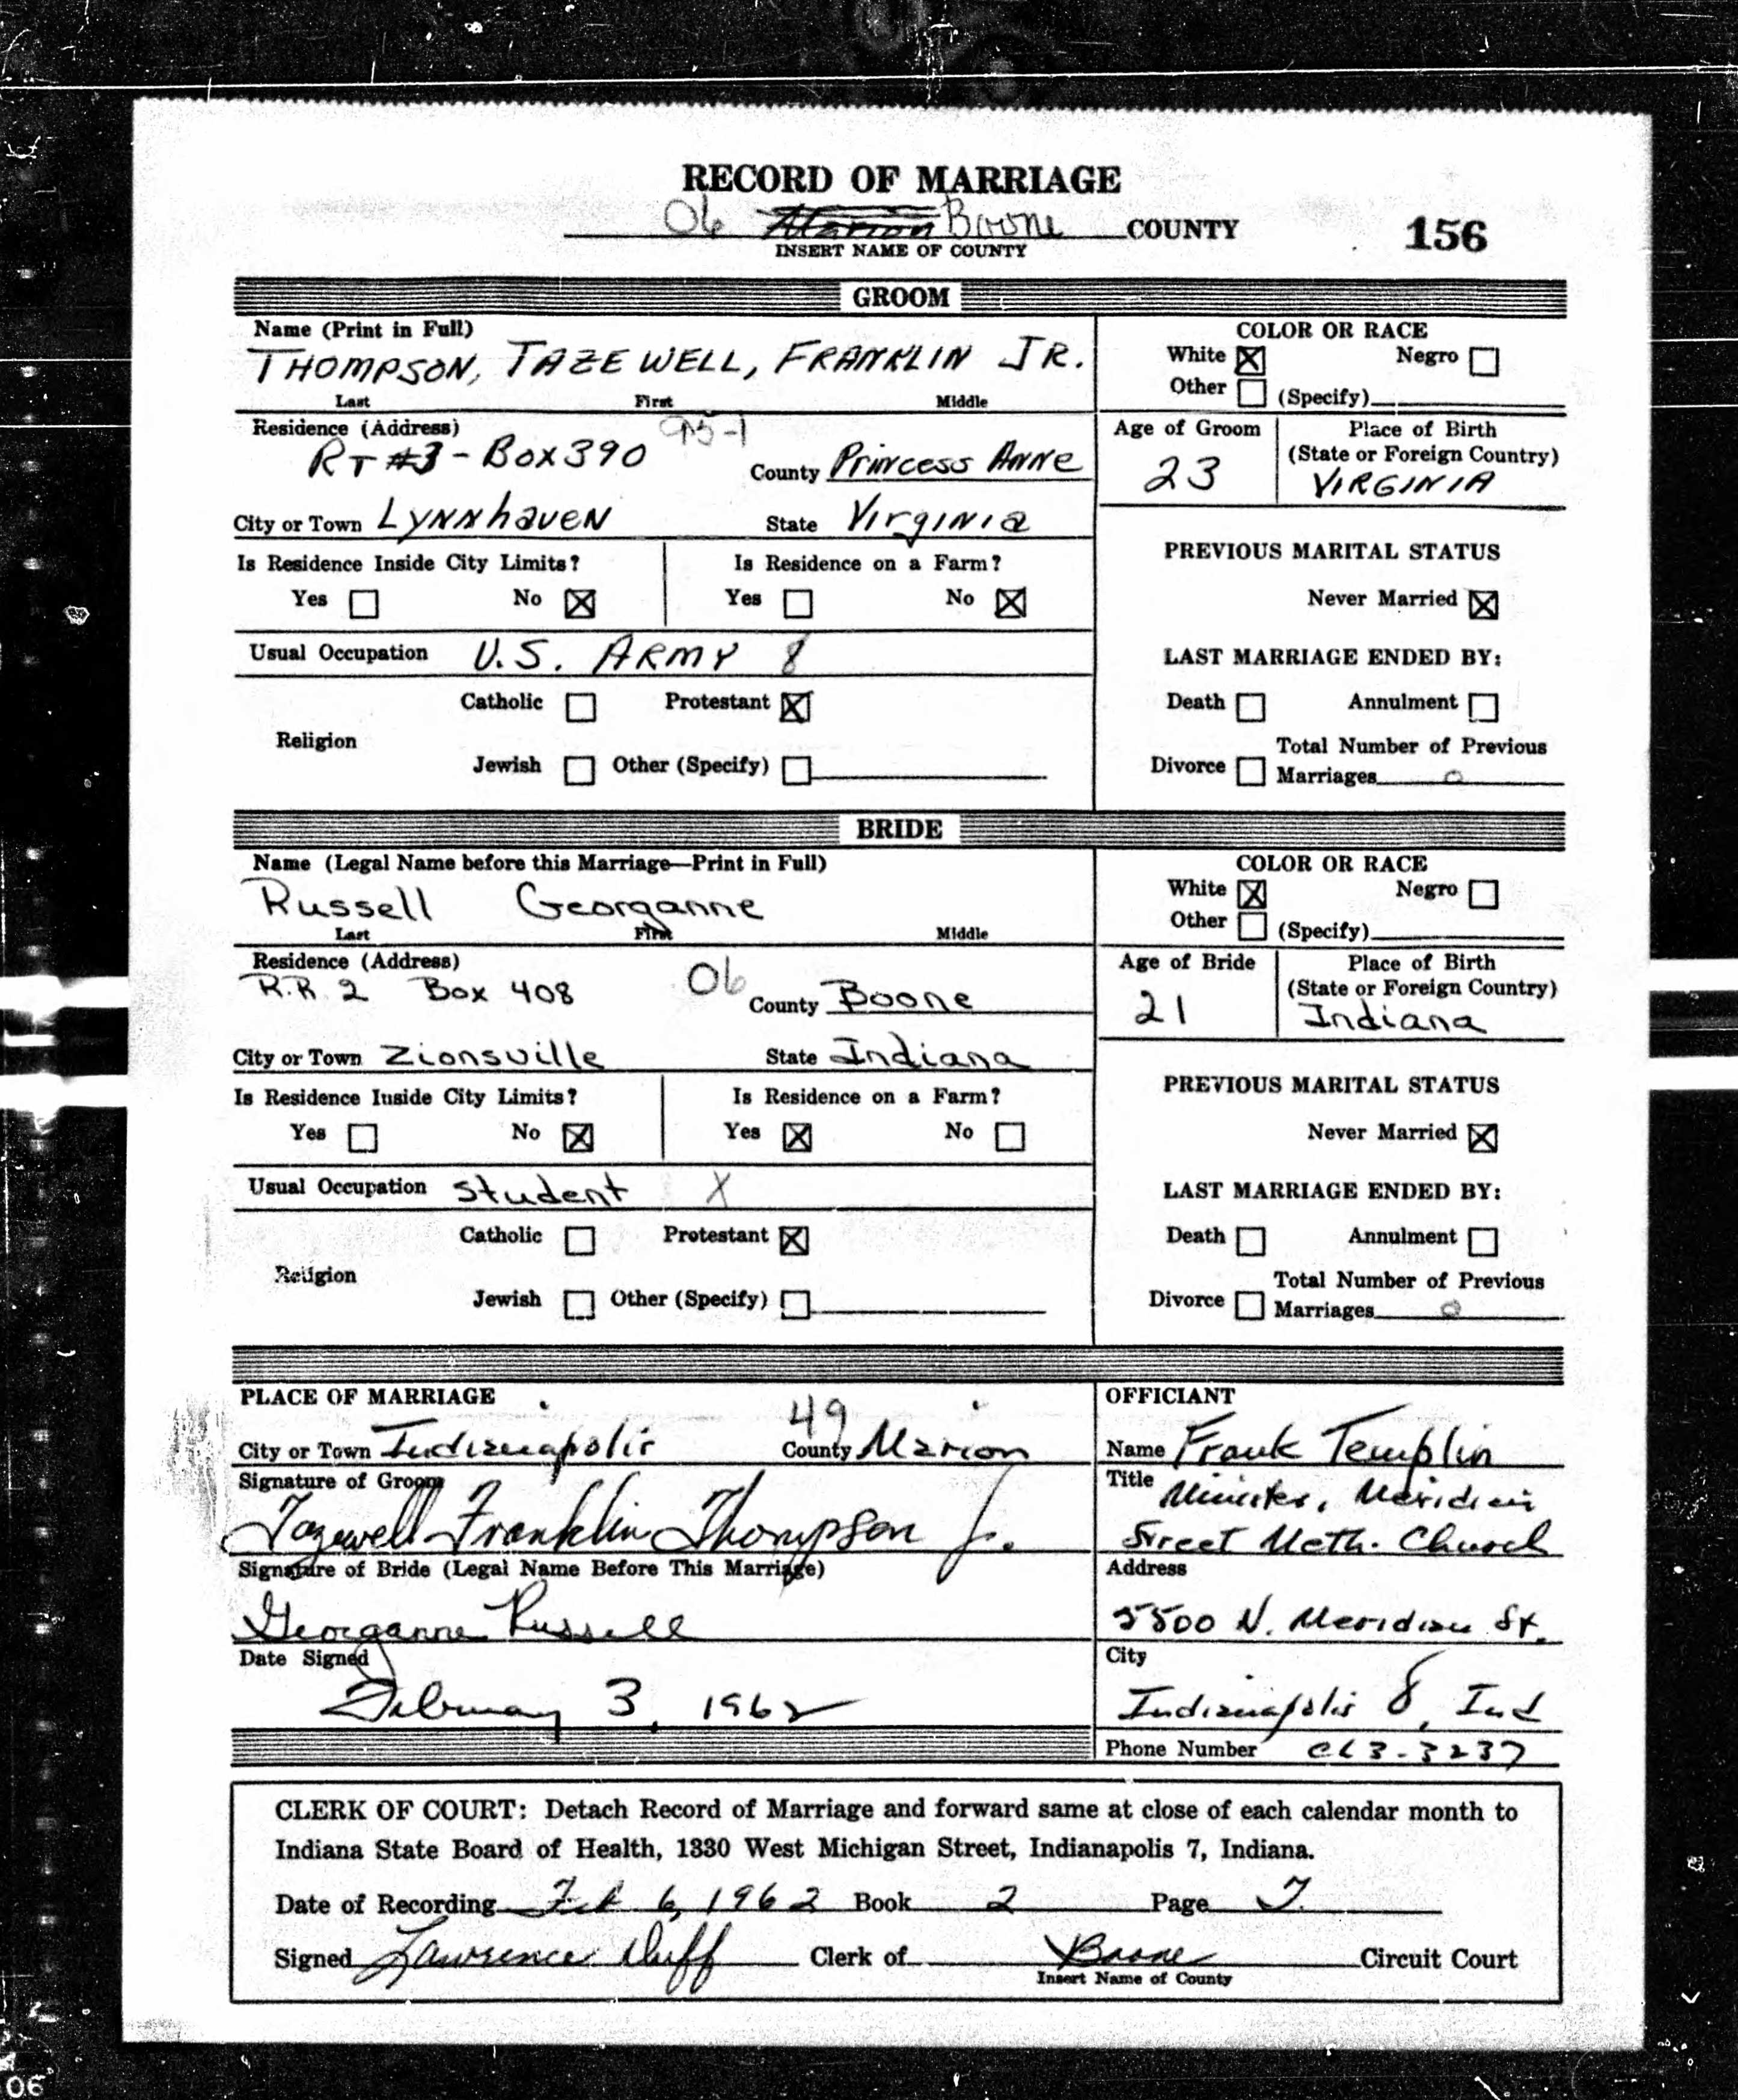 RECORD OF MARRIAGE
06 Marion Boone COUNTY 156
INSERT NAME OF COUNTY
GROOM
Name (Print in Full)
THOMPSON, TAZEWELL, FRANKLIN JR.
Last First Middle
COLOR OR RACE
White ☒ Negro ☐
Other ☐ (Specify)
Residence (Address) 95-1
RT #3 - Box 390 County Princess Anne
City or Town Lynnhaven State Virginia
Age of Groom
23
Place of Birth
(State or Foreign Country)
VIRGINIA
Is Residence Inside City Limits? Is Residence on a Farm?
Yes ☐ No ☒ Yes ☐ No ☒
PREVIOUS MARITAL STATUS
Never Married ☒
Usual Occupation U.S. ARMY 8
LAST MARRIAGE ENDED BY:
Catholic ☐ Protestant ☒
Religion
Jewish ☐ Other (Specify) ☐
Death ☐ Annulment ☐
Total Number of Previous
Divorce ☐ Marriages 0
BRIDE
Name (Legal Name before this Marriage—Print in Full)
Russell Georganne
Last First Middle
COLOR OR RACE
White ☒ Negro ☐
Other ☐ (Specify)
Residence (Address)
R.R. 2 Box 408 06 County Boone
City or Town Zionsville State Indiana
Age of Bride
21
Place of Birth
(State or Foreign Country)
Indiana
Is Residence Inside City Limits? Is Residence on a Farm?
Yes ☐ No ☒ Yes ☒ No ☐
PREVIOUS MARITAL STATUS
Never Married ☒
Usual Occupation Student X
LAST MARRIAGE ENDED BY:
Catholic ☐ Protestant ☒
Religion
Jewish ☐ Other (Specify) ☐
Death ☐ Annulment ☐
Total Number of Previous
Divorce ☐ Marriages 0
PLACE OF MARRIAGE
49
City or Town Indianapolis County Marion
Signature of Groom
Tazewell Franklin Thompson Jr.
Signature of Bride (Legal Name Before This Marriage)
Georganne Russell
Date Signed
February 3, 1962
OFFICIANT
Name Frank Templin
Title Minister, Meridian
Street Meth. Church
Address
5500 N. Meridian St.
City
Indianapolis 8, Ind
Phone Number CL3-3237
CLERK OF COURT: Detach Record of Marriage and forward same at close of each calendar month to
Indiana State Board of Health, 1330 West Michigan Street, Indianapolis 7, Indiana.
Date of Recording Feb 6, 1962 Book 2 Page 7.
Signed Lawrence Duff Clerk of Boone Circuit Court
Insert Name of County
06